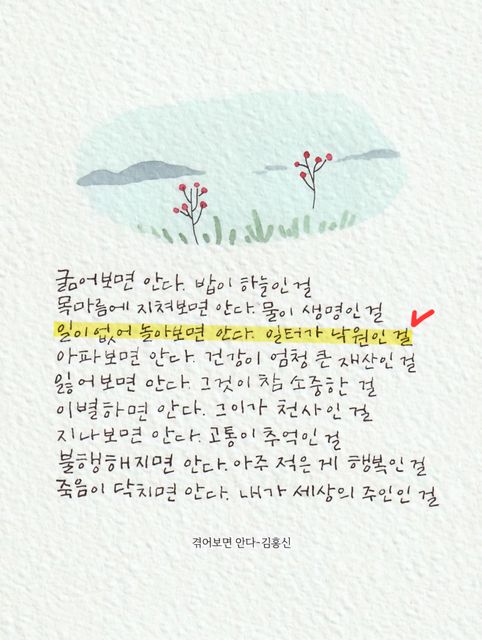 굶어보면 안다. 밥이 하늘인 걸
목마름에 지쳐보면 안다. 물이 생명인 걸
일이 없어 놀아보면 안다. 일터가 낙원인 걸
아파보면 안다. 건강이 엄청 큰 재산인 걸
잃어보면 안다. 그것이 참 소중한 걸
이별하면 안다. 그이가 천사인 걸
지나보면 안다. 고통이 추억인 걸
불행해지면 안다. 아주 적은 게 행복인 걸
죽음이 닥치면 안다. 내가 세상의 주인인 걸
겪어보면 안다-김홍신